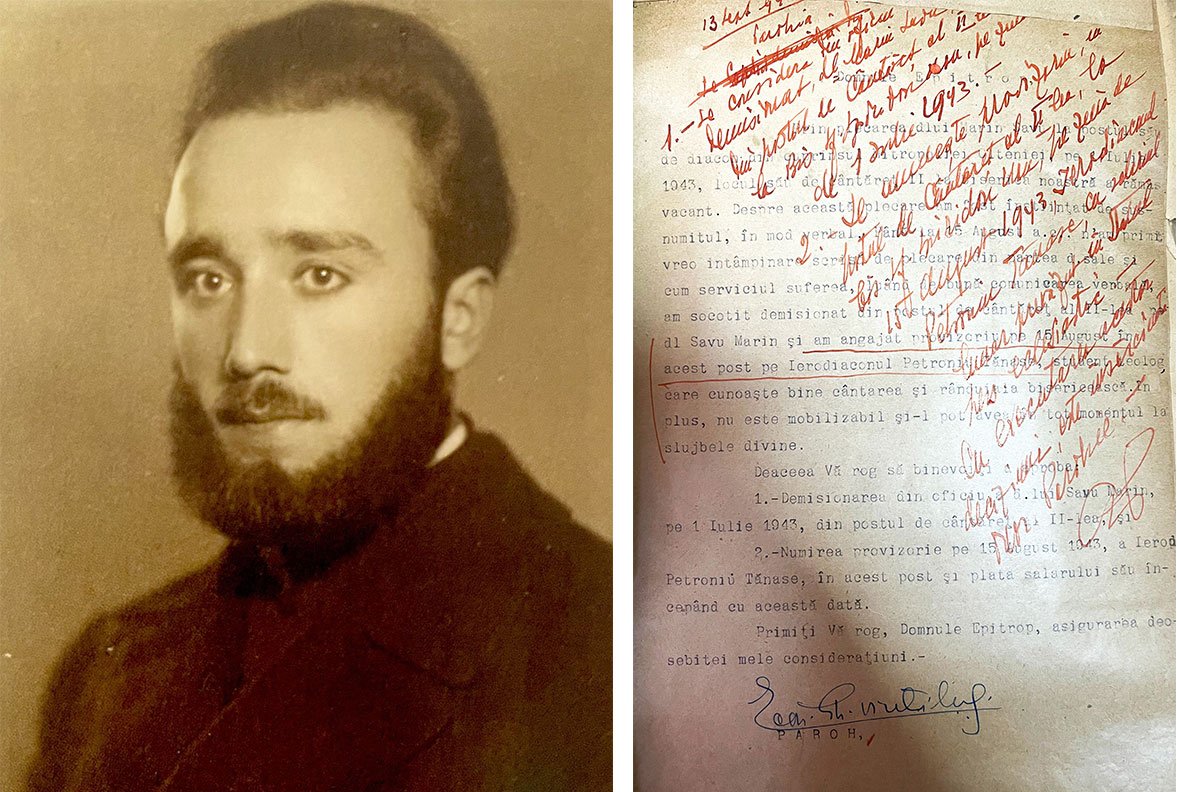 13 Sept. 943
Parohia
1.- se consideră din oficiu
demisionat, dl Marin Savu,
din postul de cântăreț al II lea
la Bis. Sf. Spiridon Nou, pe ziua
de 1 Iulie 1943.-
2. Se numește provizoriu, în
postul de cântăreț al II lea, la
Bis. Sf. Spiridon Nou, pe ziua de
15 August 1943, Ierodiaconul
Petroniu Tănase, cu salariul
Cu executarea
Parohiei
Domnule Epitrop
Prin plecarea dlui Marin Savu la postul
de diacon din cuprinsul Mitropoliei Olteniei pe 1 Iulie
1943, locul său de cântăreț II la biserica noastră a rămas
vacant. Despre această plecare am fost înștiințat de sus-
numitul, în mod verbal. Până la 15 August a.c. neam primit
vreo întâmpinare scrisă de plecare din partea d.sale și
cum serviciul suferea, luând de bună comunicarea verbală
am socotit demisionat din postul de cântăreț al II-lea pe
dl Savu Marin și am angajat provizoriu pe 15 August în
acest post pe Ierodiaconul Petroniu Tănase, student teolog
care cunoaște bine cântarea și rânduiala bisericească. În
plus, nu este mobilizabil și-l pot avea în tot momentul la
slujbele divine.
Deaceea Vă rog să binevoiți a aproba:
1.-Demisionarea din oficiu a d.lui Savu Marin,
pe 1 Iulie 1943, din postul de cântăreț al II-lea, și
2.-Numirea provizorie pe 15 August 1943, a Ierod
Petroniu Tănase, în acest post și plata salarului său în-
cepând cu această dată.
Primiți Vă rog, Domnule Epitrop, asigurarea deo-
sebitei mele considerațiuni.-
PAROH,